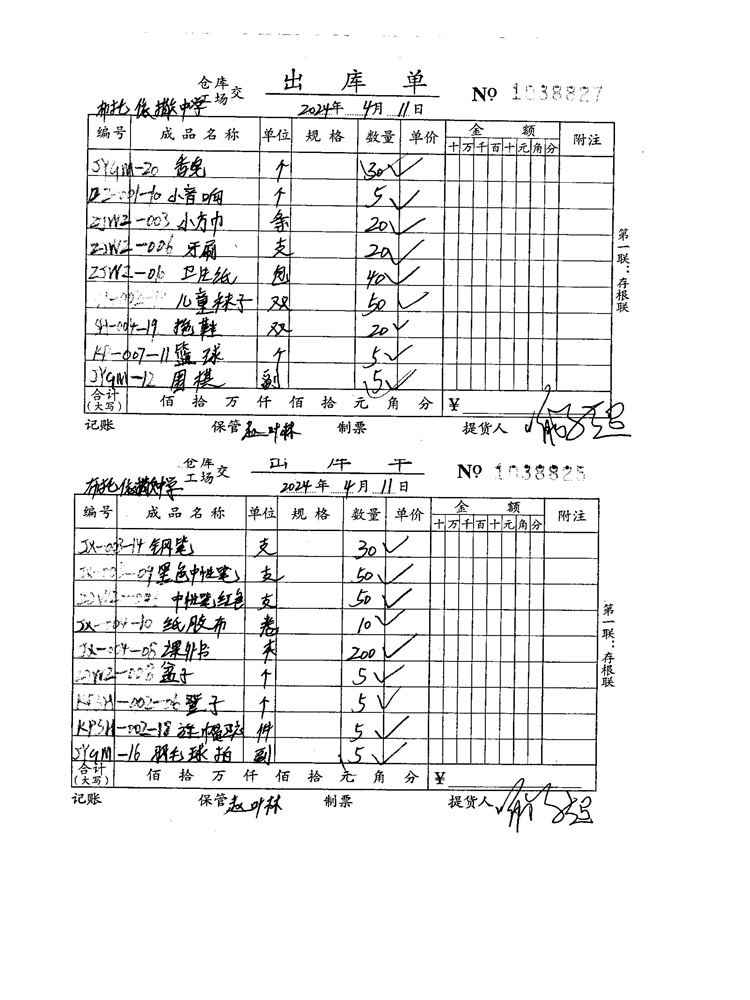 仓库 出 库 单
工场 交 № 1938827
布托 依撒中学 2024年 4月 11日
编号 成品名称 单位 规格 数量 单价 金 额 附注
十 万 千 百 十 元 角 分
JYGM-20 香皂 个 30
-001-10 小音响 个 5
ZJWZ-003 小方巾 条 20
ZJWZ-006 牙刷 支 20
ZJWZ-06 卫生纸 包 40
儿童袜子 双 50
-004-19 拖鞋 双 20
-007-11 篮球 个 5
JYGM-12 围棋 副 5
第一联:存根联
合计(大写) 佰 拾 万 仟 佰 拾 元 角 分 ¥
记账 保管 赵叶林 制票 提货人
仓库 出 库 单
工场 交 № 1938825
布托 依撒中学 2024年 4月 11日
编号 成品名称 单位 规格 数量 单价 金 额 附注
十 万 千 百 十 元 角 分
JX-003-14 钢笔 支 30
-09 黑色中性笔 支 50
中性笔红色 支 50
JX-04-10 纸胶布 卷 10
JX-04-05 课外书 本 200
盆子 个 5
KPSH-002-06 凳子 个 5
KPSH-002-18 件 5
JYGM-16 羽毛球拍 副 5
第一联:存根联
合计(大写) 佰 拾 万 仟 佰 拾 元 角 分 ¥
记账 保管 赵叶林 制票 提货人